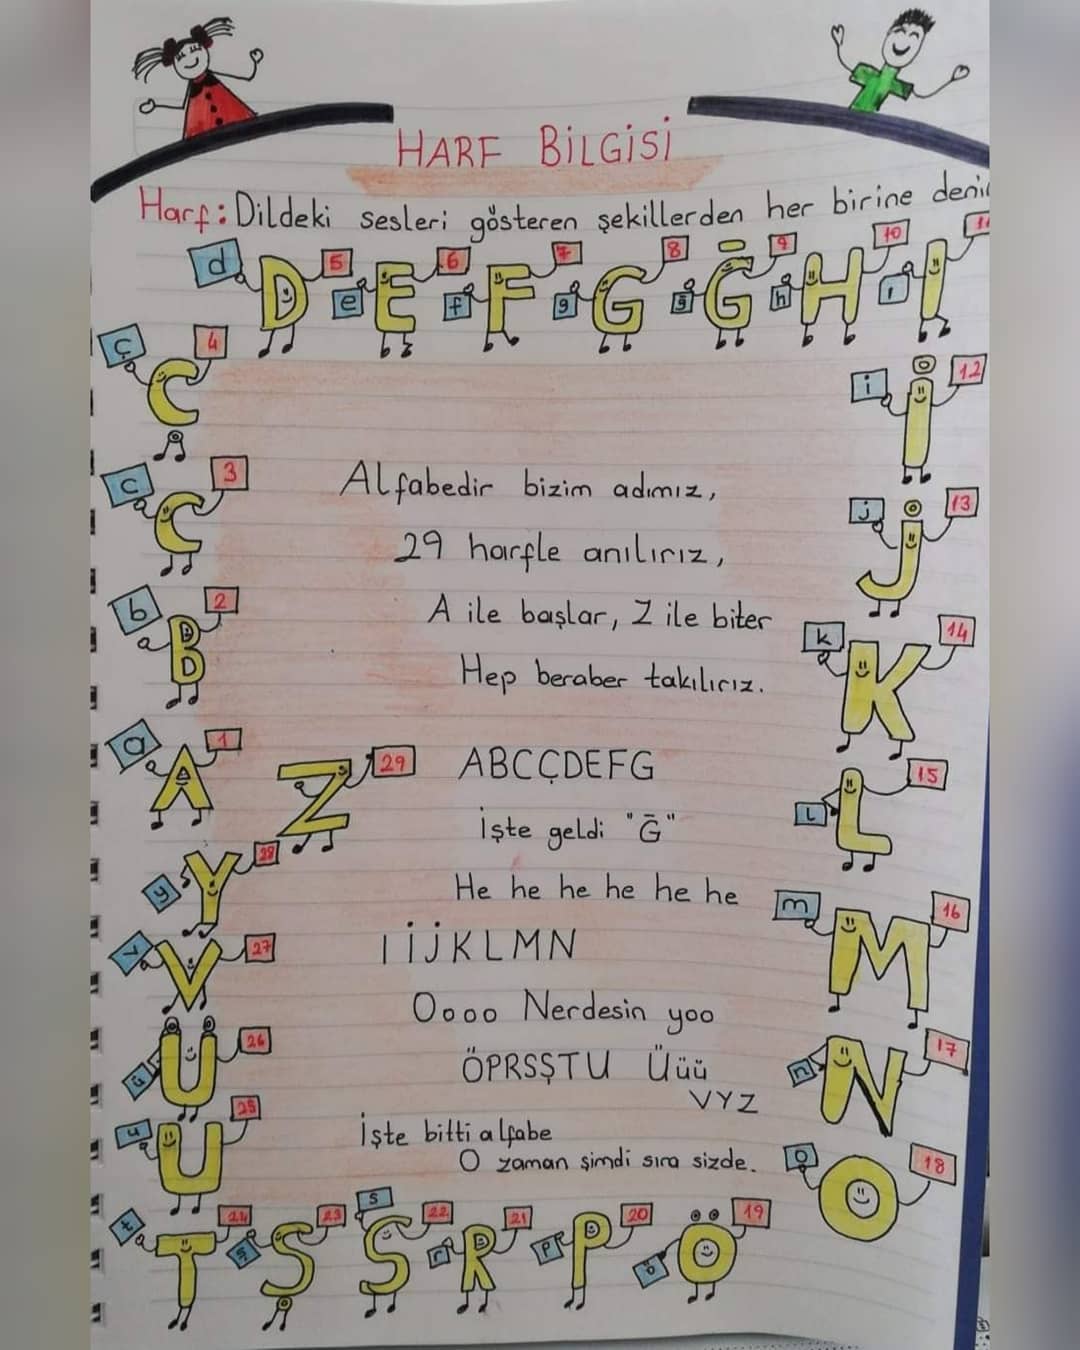 HARF BİLGİSİ
Harf: Dildeki sesleri gösteren şekillerden her birine
d D 5 e E 6 f F 7 g G 8 ğ Ğ 9 h H 10 ı I
ç Ç 4
i İ 12
c C 3
j J 13
b B 2
k K 14
a A 1
L L 15
Z 29
y Y 28
m M 16
v V 27
ü Ü 26
n N 17
u U 25
o O 18
t T 24 ş Ş 23 s S 22 r R 21 p P 20 ö Ö 19
Alfabedir bizim adımız,
29 harfle anılırız,
A ile başlar, Z ile biter
Hep beraber takılırız.
ABCÇDEFG
İşte geldi "Ğ"
He he he he he he
I İ J K L M N
Oooo Nerdesin yoo
ÖPRSŞTU Üüü
VYZ
İşte bitti alfabe
O zaman şimdi sıra sizde.